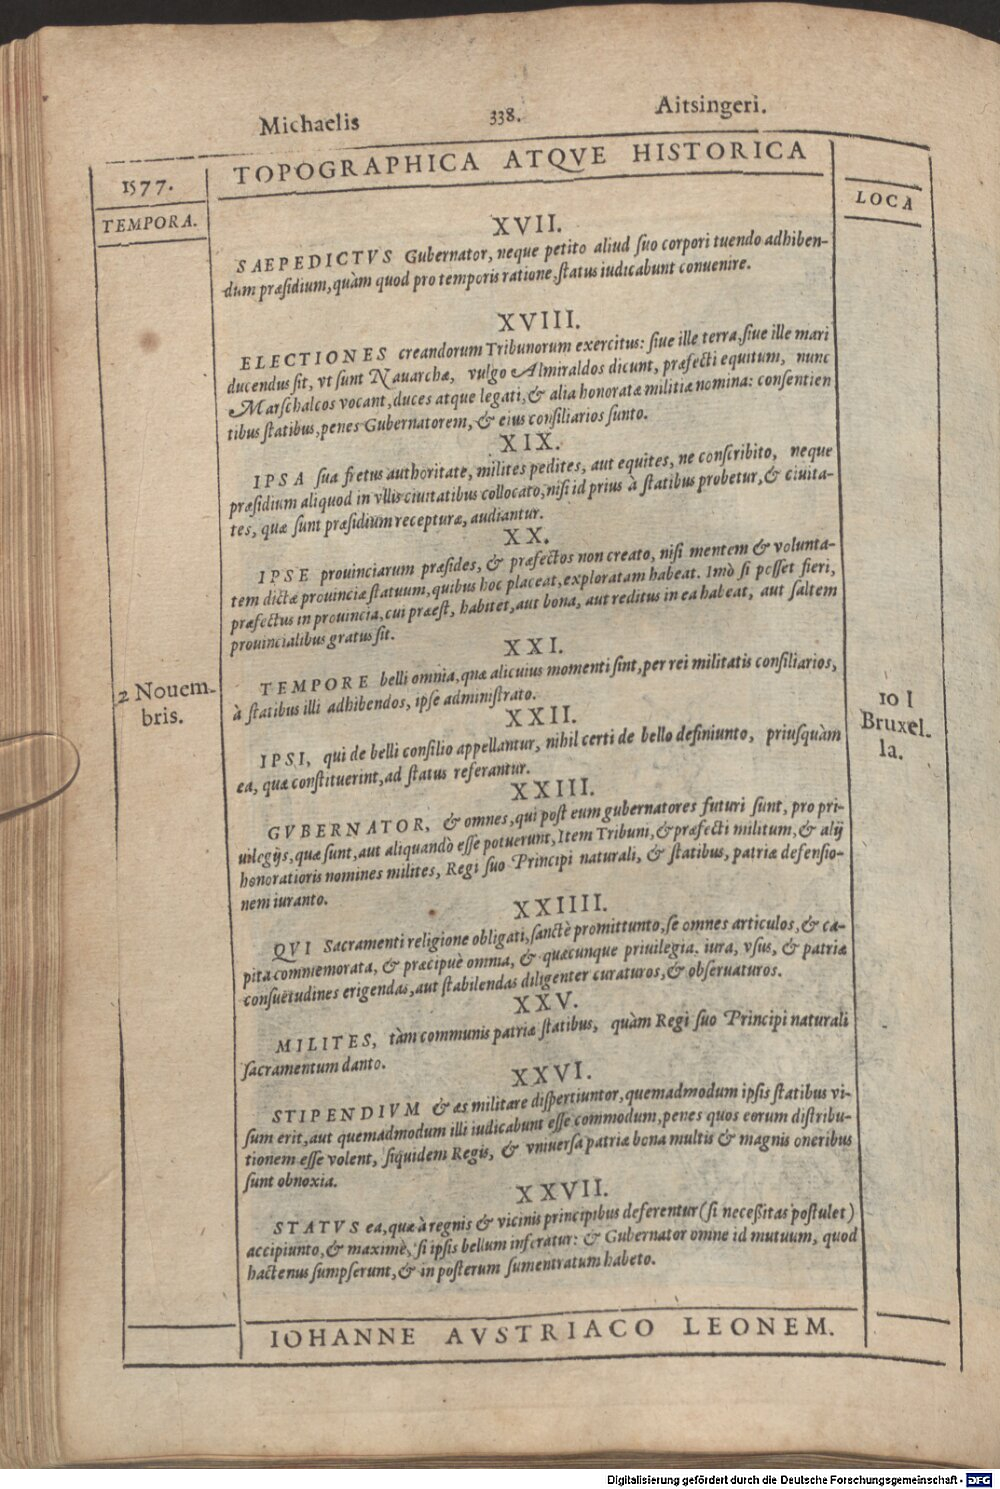 Michaelis 338. Aitsingeri.
1577. TOPOGRAPHICA ATQVE HISTORICA
TEMPORA. LOCA
XVII.
SAEPEDICTVS Gubernator, neque petito aliud ſuo corpori tuendo adhiben-
dum præſidium, quàm quod pro temporis ratione, ſtatus iudicabunt conuenire.
XVIII.
ELECTIONES creandorum Tribunorum exercitus: ſiue ille terra, ſiue ille mari
ducendus ſit, vt ſunt Nauarchæ, vulgo Almiraldos dicunt, præfecti equitum, nunc
Marſchalcos vocant, duces atque legati, & alia honoratæ militiæ nomina: conſentien
tibus ſtatibus, penes Gubernatorem, & eius conſiliarios ſunto.
XIX.
IPSA ſua fretus authoritate, milites pedites, aut equites, ne conſcribito, neque
præſidium aliquod in vllis ciuitatibus collocato, niſi id prius à ſtatibus probetur, & ciuita-
tes, quæ ſunt præſidium recepturæ, audiantur.
XX.
IPSE prouinciarum præſides, & præfectos non creato, niſi mentem & volunta-
tem dictæ prouinciæ ſtatuum, quibus hoc placeat, exploratam habeat. Imò ſi poſſet fieri,
præfectus in prouincia, cui præeſt, habitet, aut bona, aut reditus in ea habeat, aut ſaltem
prouincialibus gratus ſit.
XXI.
TEMPORE belli omnia, quæ alicuius momenti ſint, per rei militatis conſiliarios,
à ſtatibus illi adhibendos, ipſe adminiſtrato.
2 Nouem-
bris.
10 I
Bruxel-
la.
XXII.
IPSI, qui de belli conſilio appellantur, nihil certi de bello definiunto, priuſquàm
ea, quæ conſtituerint, ad ſtatus referantur.
XXIII.
GVBERNATOR, & omnes, qui poſt eum gubernatores futuri ſunt, pro pri-
uilegijs, quæ ſunt, aut aliquandò eſſe potuerunt, Item Tribuni, & præfecti militum, & alij
honoratioris nomines milites, Regi ſuo Principi naturali, & ſtatibus, patriæ defenſio-
nem iuranto.
XXIIII.
QVI Sacramenti religione obligati, ſanctè promittunto, ſe omnes articulos, & ca-
pita commemorata, & præcipuè omnia, & quæcunque priuilegia, iura, vſus, & patriæ
conſuetudines erigendas, aut ſtabilendas diligenter curaturos, & obſeruaturos.
XXV.
MILITES, tàm communis patriæ ſtatibus, quàm Regi ſuo Principi naturali
ſacramentum danto.
XXVI.
STIPENDIVM & æs militare diſpertiuntor, quemadmodum ipſis ſtatibus vi-
ſum erit, aut quemadmodum illi iudicabunt eſſe commodum, penes quos eorum diſtribu-
tionem eſſe volent, ſiquidem Regis, & vniuerſa patriæ bona multis & magnis oneribus
ſunt obnoxia.
XXVII.
STATVS ea, quæ à regnis & vicinis principibus deferentur (ſi neceßitas poſtulet)
accipiunto, & maximè, ſi ipſis bellum inferatur: & Gubernator omne id mutuum, quod
hactenus ſumpſerunt, & in poſterum ſument ratum habeto.
IOHANNE AVSTRIACO LEONEM.
Digitalisierung gefördert durch die Deutsche Forschungsgemeinschaft - DFG